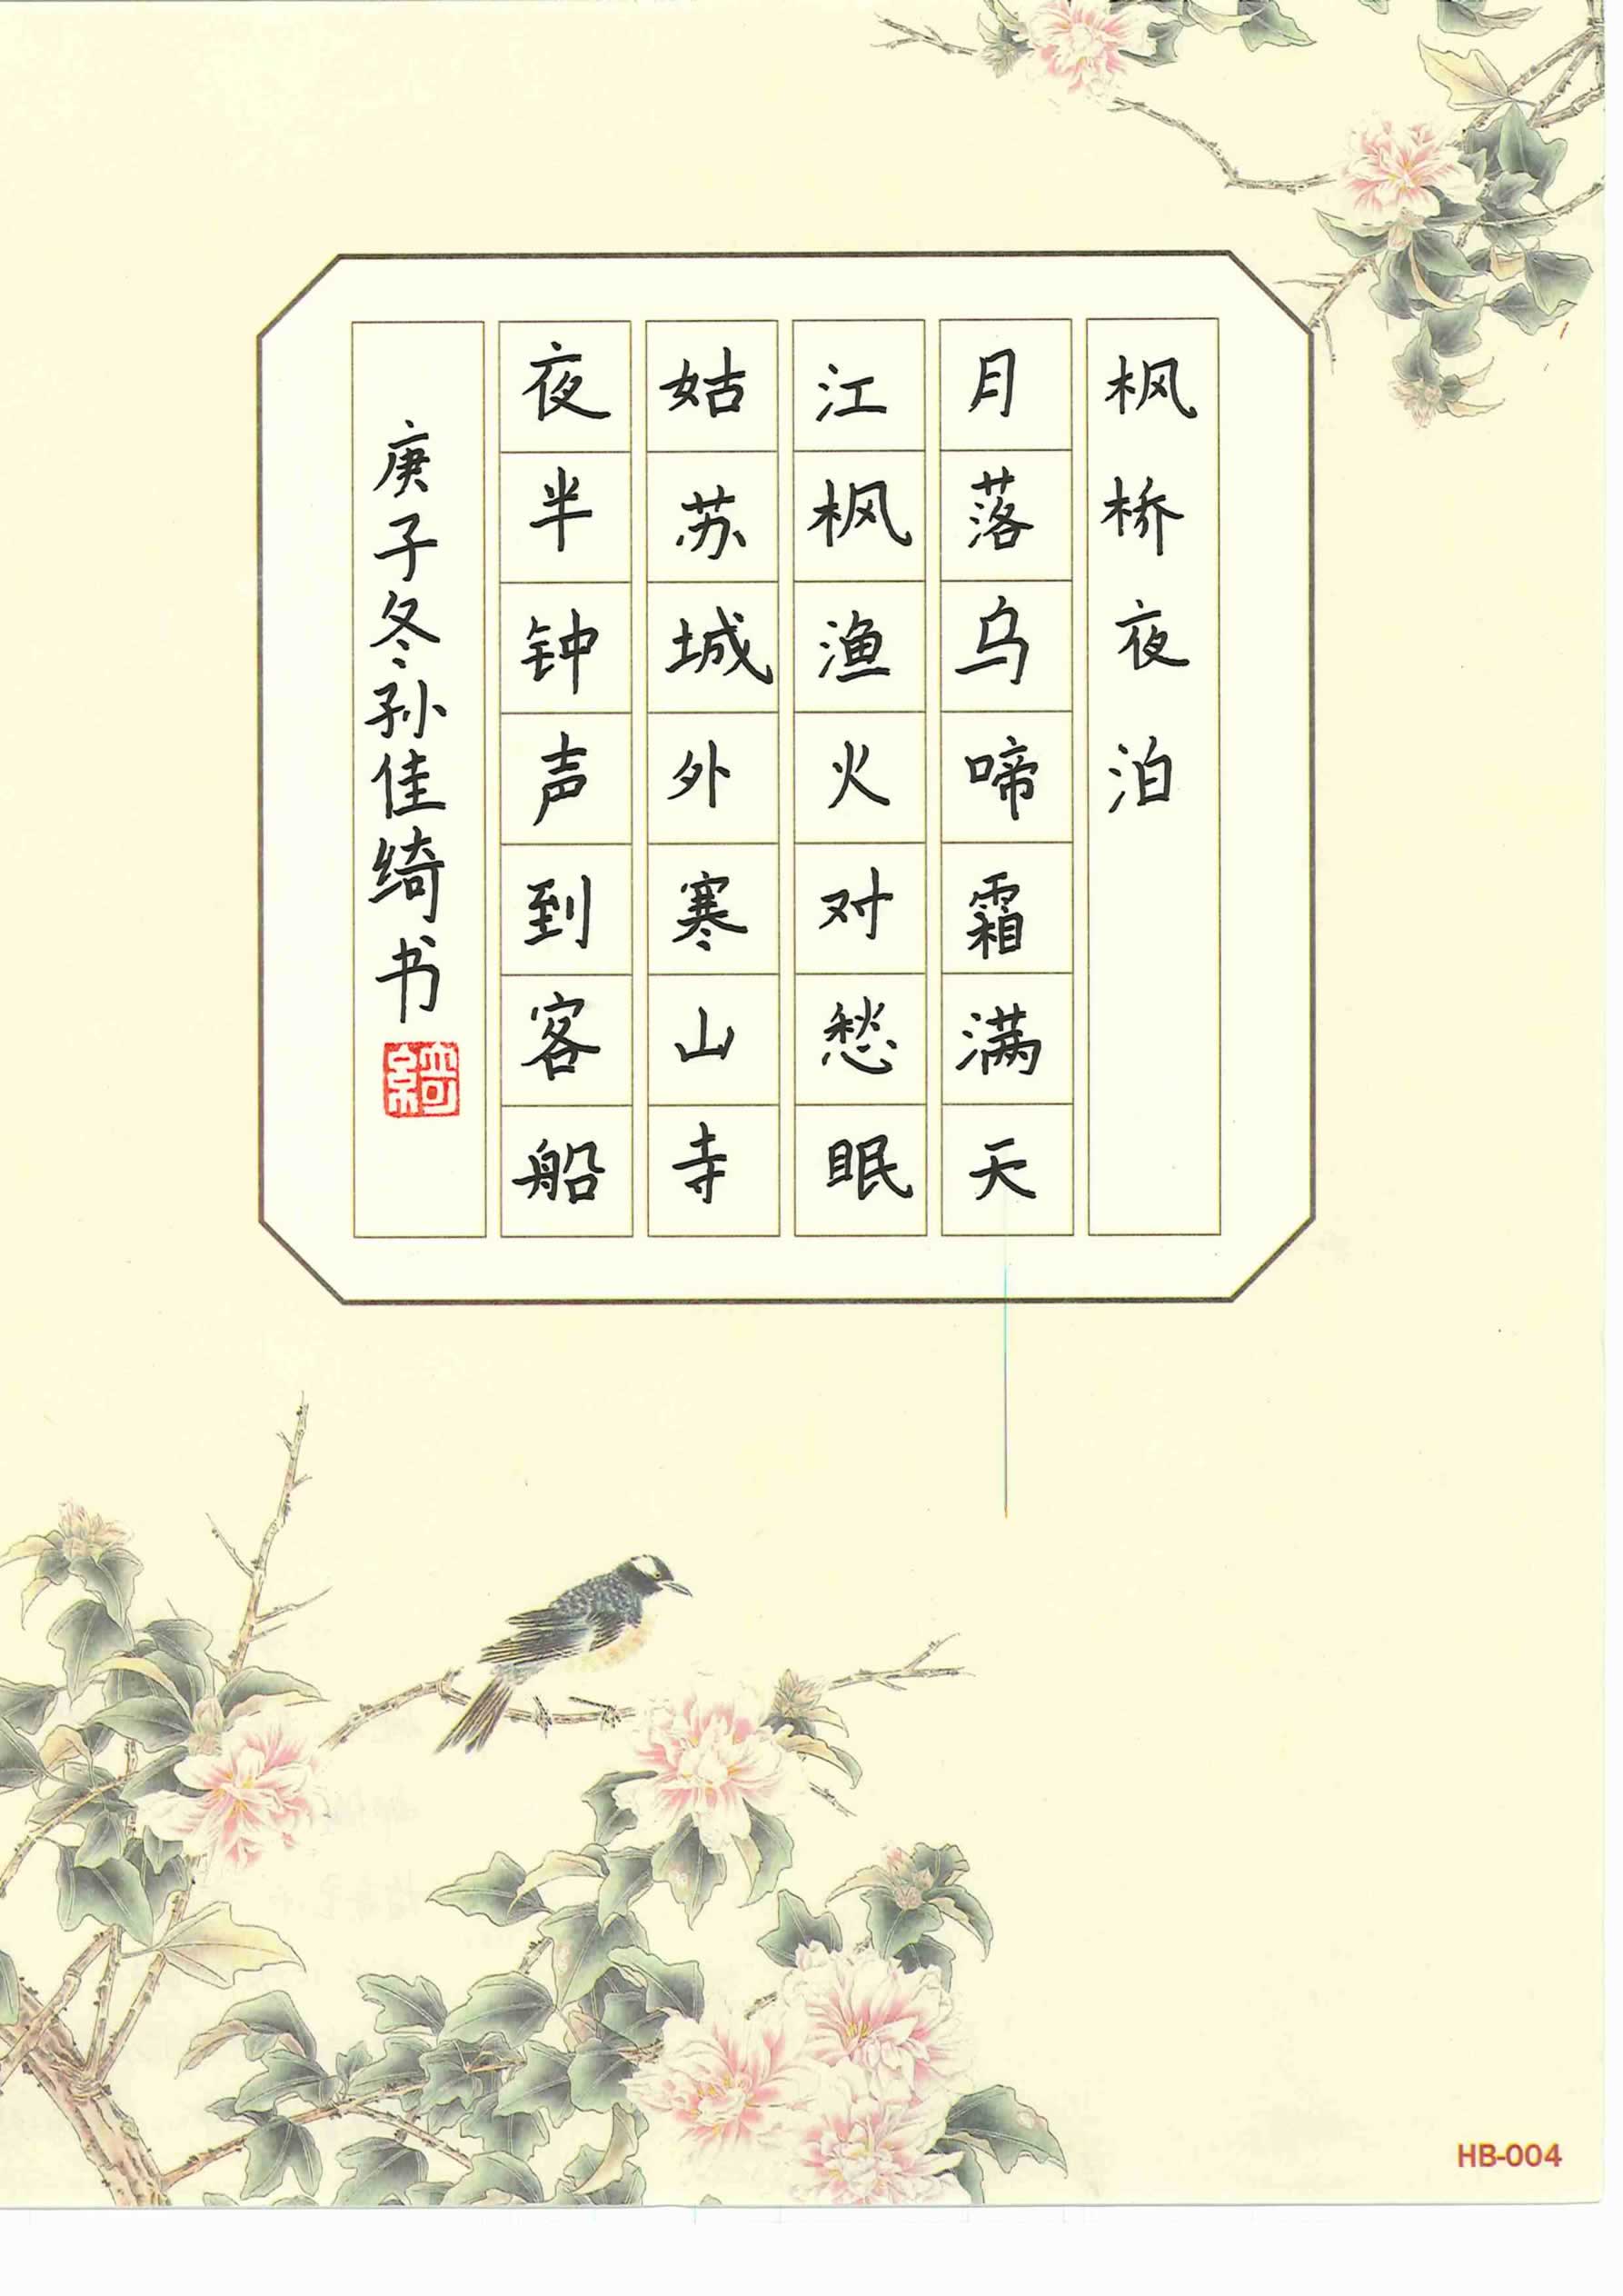 枫桥夜泊
月落乌啼霜满天
江枫渔火对愁眠
姑苏城外寒山寺
夜半钟声到客船
庚子冬孙佳绮书
綺
HB-004